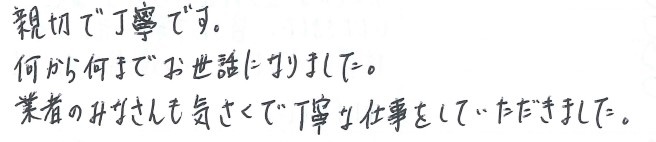 親切で丁寧です。
何から何までお世話になりました。
業者のみなさんも気さくで丁寧な仕事をしていただきました。